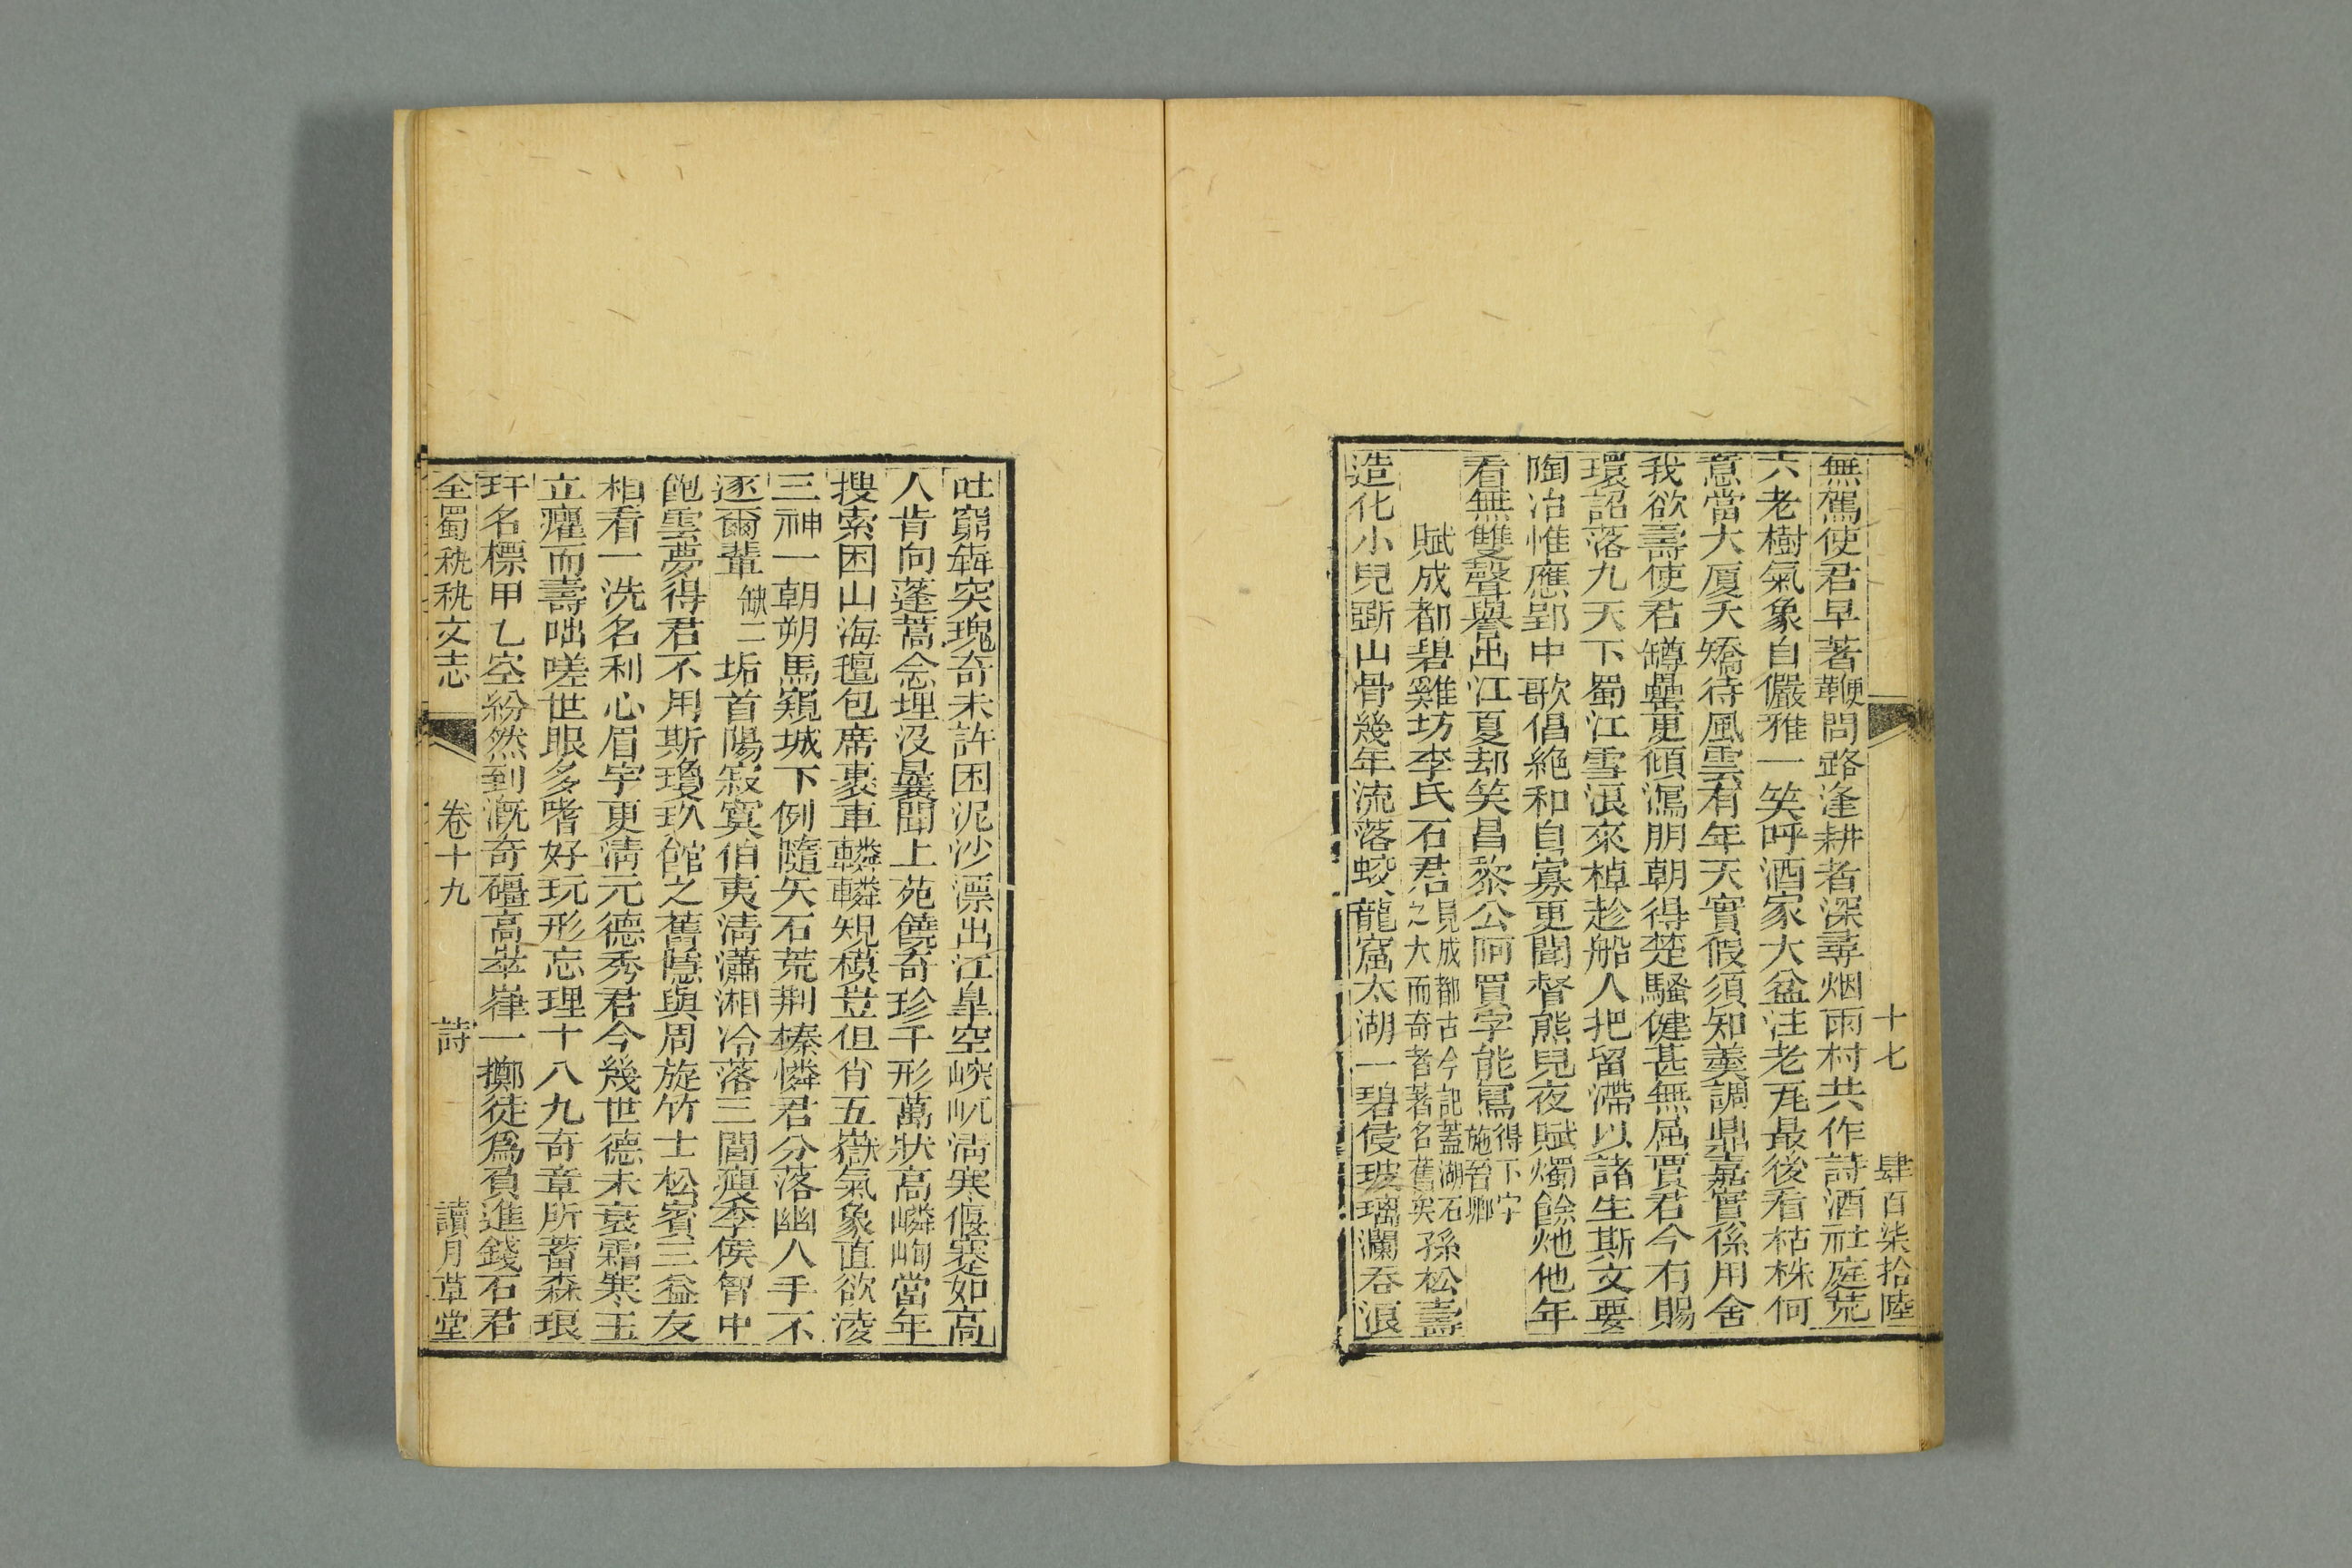 十七 肆百柒拾陸
無駕使君早著鞭問路逢耕者深尋烟雨村共作詩酒社庭荒
六老樹氣象自儼雅一笑呼酒家大盆注老瓦最後看枯株何
意當大厦夭矯待風雲有年天實假須知羮調鼎嘉實係用舍
我欲壽使君罇罍更傾瀉朋朝得楚騷健甚無屈賈君今有賜
環詔落九天下蜀江雪浪來棹趁船人把留滯以諸生斯文要
陶冶惟應郢中歌倡絶和自寡更聞督熊兒夜賦燭餘灺他年
看無雙聲譽出江夏却笑昌黎公阿買字能寫得下字施晉卿
賦成都碧雞坊李氏石君見成都古今記蓋湖石之大而奇者著名舊矣 孫松壽
造化小兒斲山骨幾年流落蛟龍窟太湖一碧侵玻璃瀾呑浪
吐窮犇突瑰奇未許困泥沙漂出江皐空嵃屼淸寒偃蹇如高
人肯向蓬蒿念埋沒曩聞上苑饒奇珍千形萬狀高嶙峋當年
搜索困山海氊包席裹車轔轔規模豈但肖五嶽氣象直欲淩
三神一朝朔馬窺城下例隨矢石荒荆榛憐君分落幽人手不
逐爾輩缺二垢首陽寂寞伯夷淸瀟湘冷落三閭瘦季侯智中
飽雲夢得君不用斯瓊玖館之舊隱與周旋竹士松賓三益友
相看一洗名利心眉宇更淸元德秀君今幾世德未衰霜寒玉
立癯而壽咄嗟世眼多嗜好玩形忘理十八九奇章所蓄森琅
玕名標甲乙空紛然到漑奇礓高崒嵂一擲徒爲負進錢石君
全蜀秇秇文志 卷十九 詩 讀月草堂